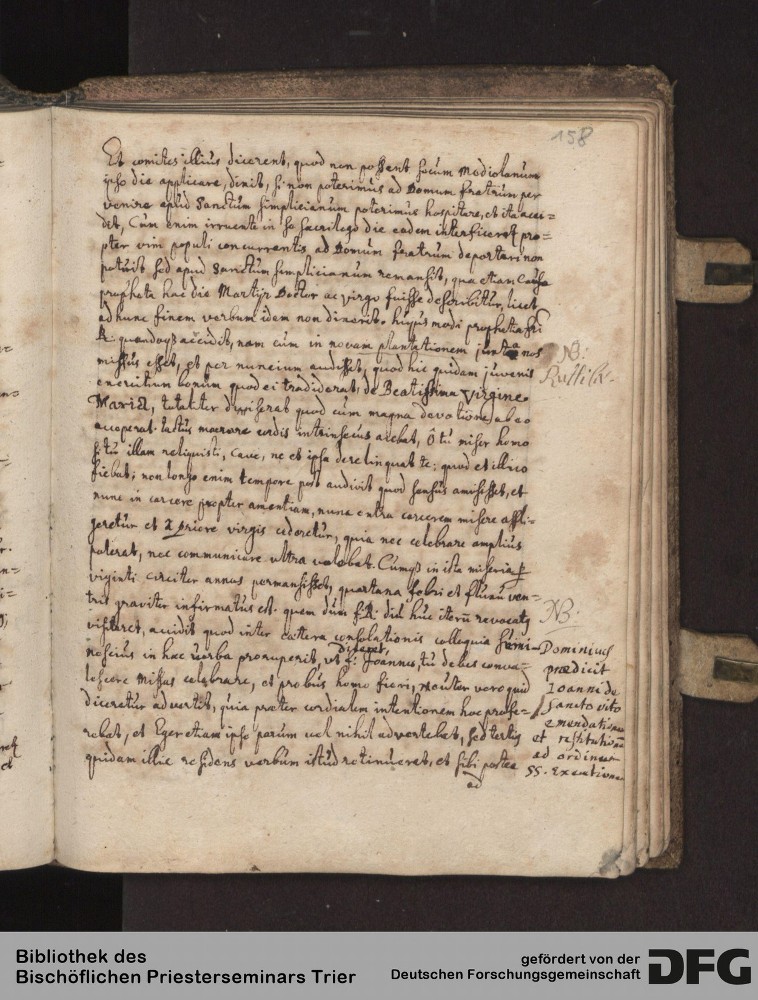 158
Et comites illius dicerent, quod non possent secum Mediolanum
ipso die applicare, dixit, si non poterimus ad Domum fratrum per
venire apud Sanctum Simplicianum poterimus hospitare, et ita acci=
dit, Cum enim irruente in se sacrilego die eadem interficeret pro=
pter vim populi concurrentis ad Domum fratrum deportari non
potuit sed apud Sanctum Simplicianum remansit, qua etiam causa
propheta hac die Martyr Doctor ac virgo fuisse describitur, licet
ad hunc finem verbum idem non dixerit. hujus modi prophetia
quandoque accidit, nam cum in novam plantationem juxta nos
missus esset, et per nuncium audisset, quod hic quidam juvenis
exercitum bonum quod ei tradiderat, de Beatissima Virgine
Maria, totaliter dimiserat quod cum magna devotione ab eo
acceperat. tactus maerore cordis intrinsecus aiebat, O tu miser homo
si tu illam reliquisti, cave, ne et ipsa derelinquat te: quod et illico
fiebat; non longo enim tempore post audivit quod sensus amisisset, et
nunc in carcere propter amentiam, nunc extra carcerem misere affli=
geretur et a priore virgis cederetur, quia nec celebrare amplius
poterat, nec communicare ultra volebat. Cumque in ista miseria
viginti circiter annos permansisset, quartana febri et fluxu ven=
tris graviter infirmatus est. quem dum diu huc iterum revocatus
visitaret, accidit quod inter caetera consolationis colloquia
nescius in haec verba proruperit, ut diceret,
Joannes, tu debes conva=
lescere Missas celebrare, et probus homo fieri, neuter vero quid
diceretur advertit, quia praeter cordialem intentionem hoc profe=
rebat, et Eger etiam ipse parum vel nihil advertebat, sed tertius
quidam illic residens verbum istud retinuerat, et sibi postea
ad
NB:
NB:
Dominicus
praedicit
Ioanni de
Sancto vito
emendationem
et restitutionem
ad ordinem
SS. Executionem
Bibliothek des
Bischöflichen Priesterseminars Trier
gefördert von der
Deutschen Forschungsgemeinschaft
DFG